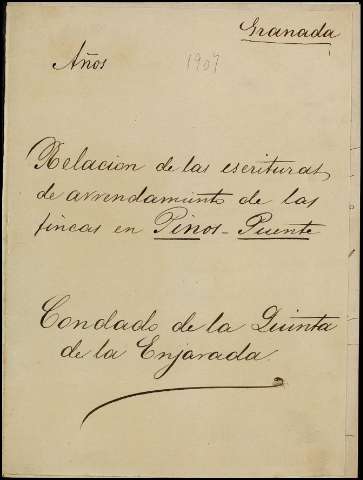 Granada
Años 1907
Relacion de las escrituras
de arrendamiento de las
fincas en Pinos-Puente
Condado de la Quinta
de la Enjarada.